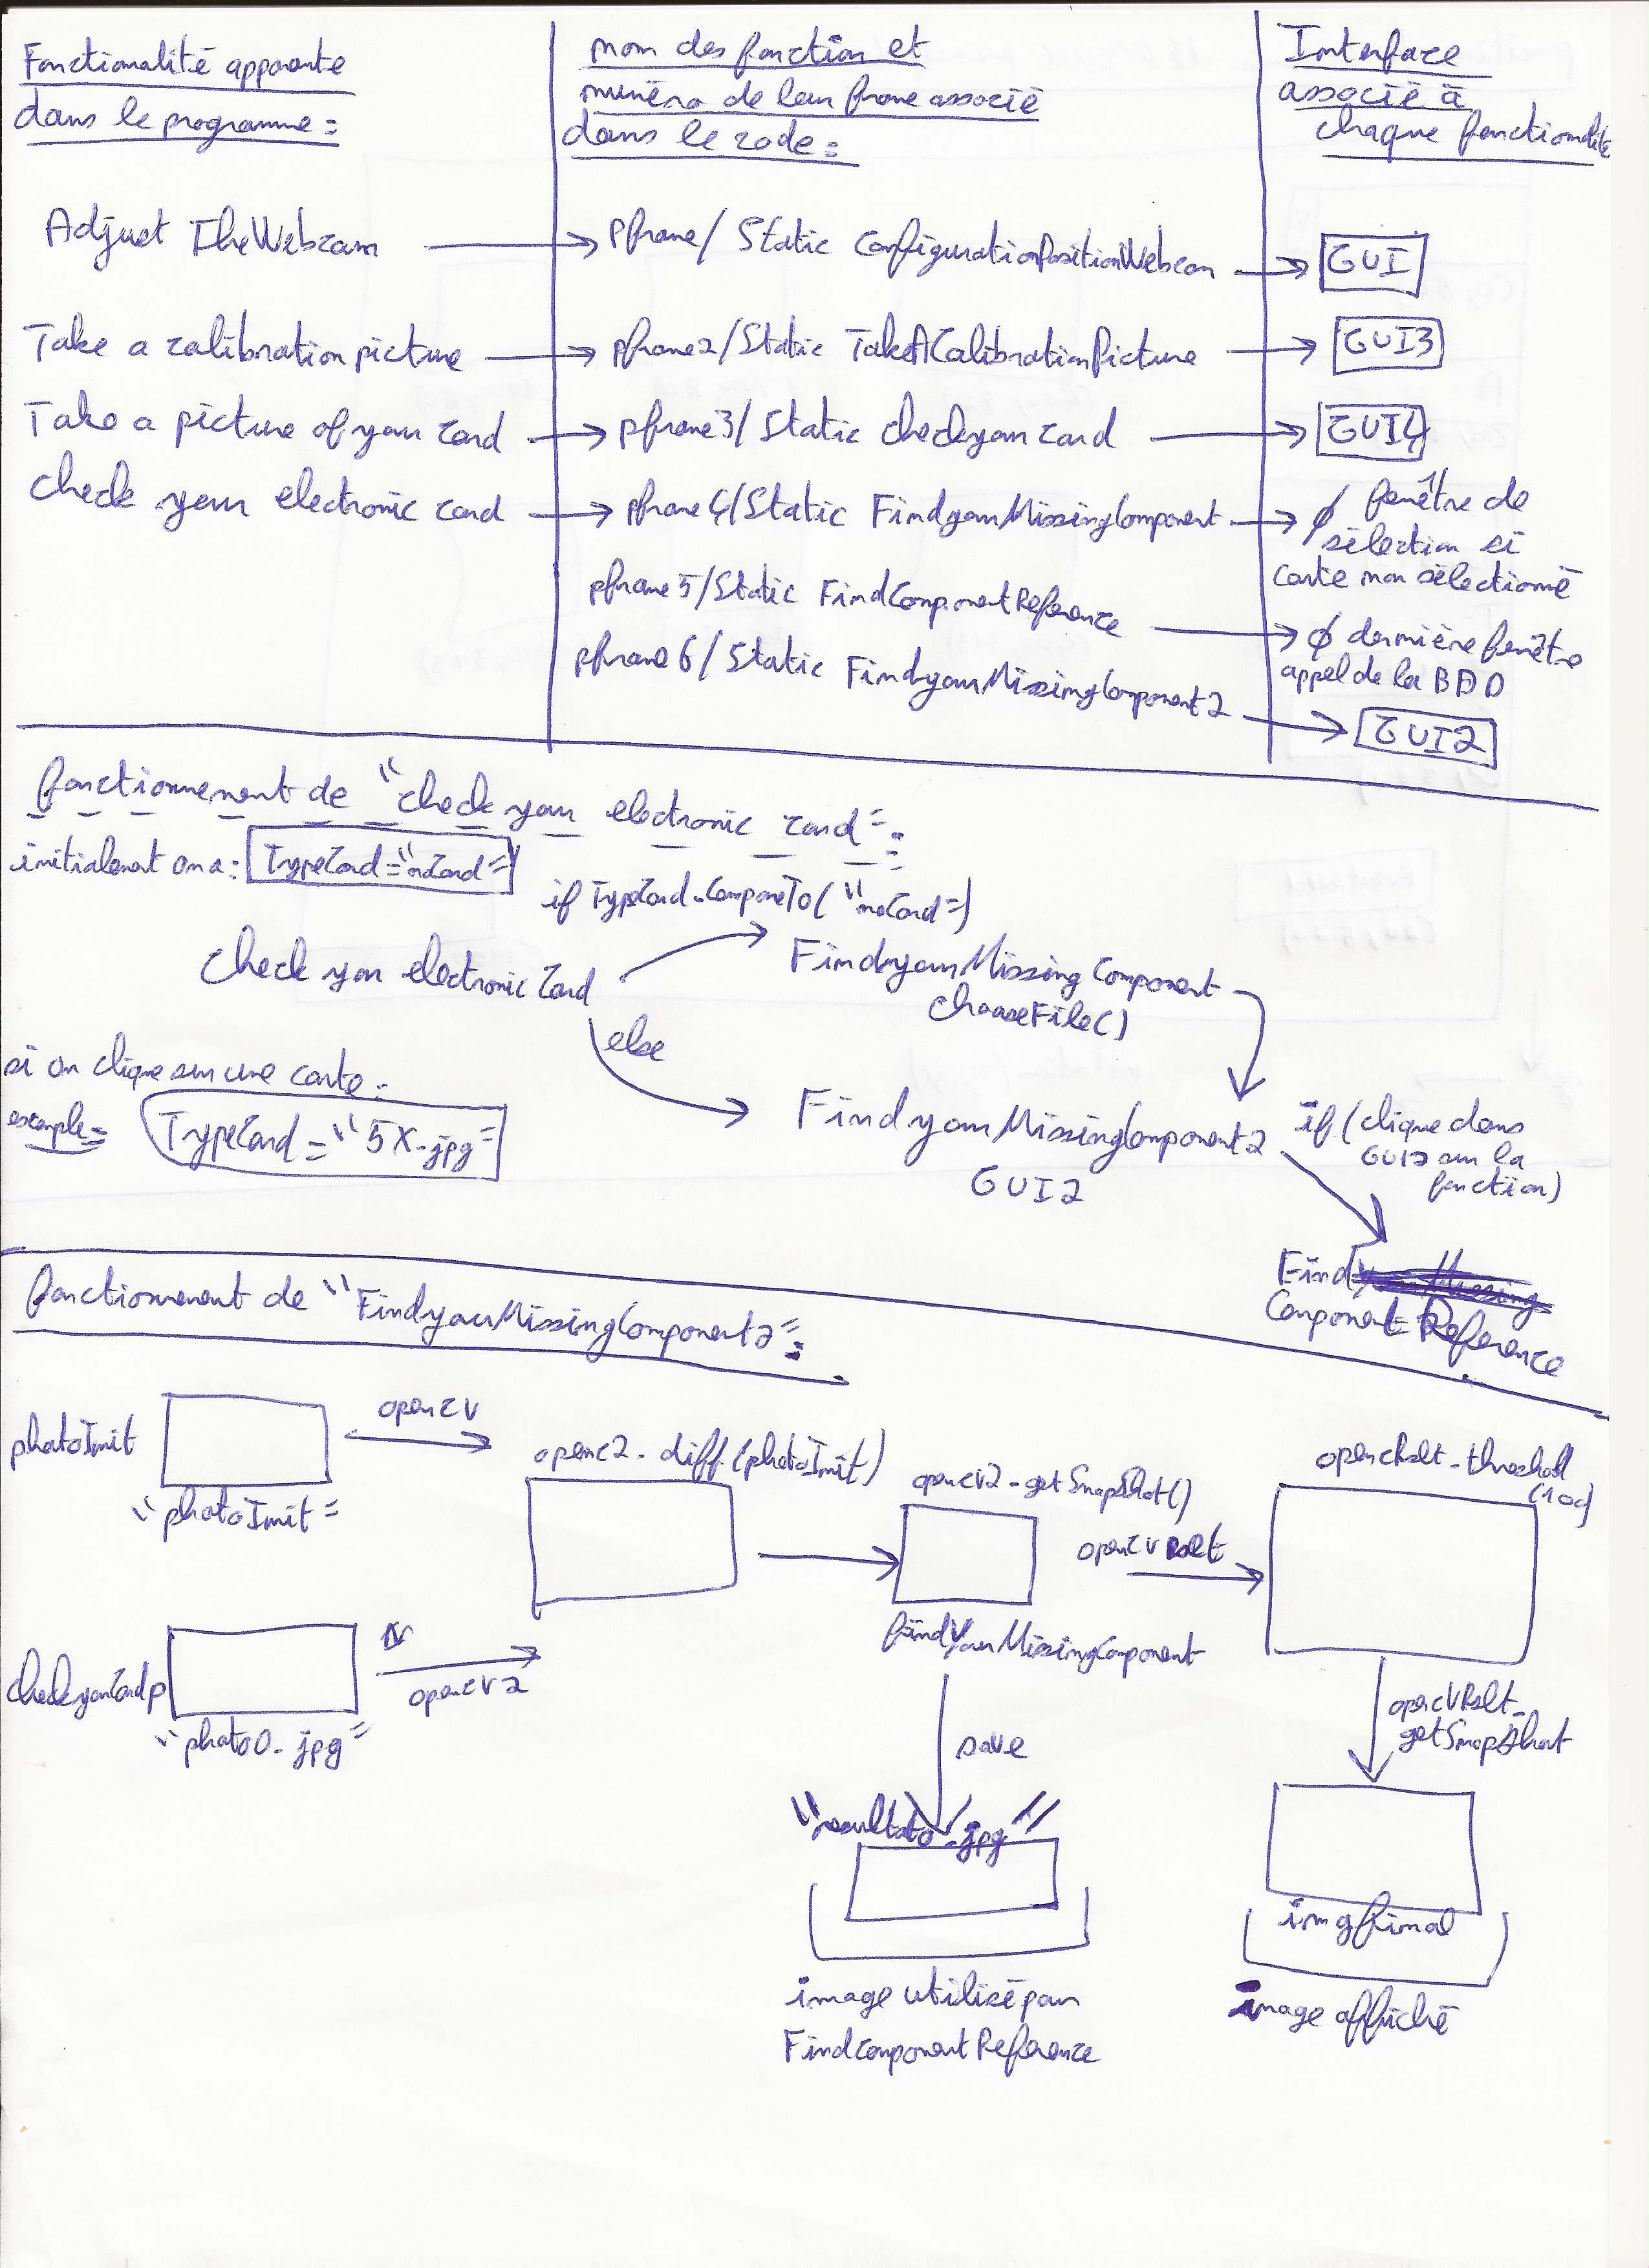 Fonctionalité apparente
dans le programme :
nom des fonction et
numéro de leur frame associé
dans le code :
Interface
associé à
chaque fonctionalité
Adjust TheWebcam
pframe / Static ConfigurationPositionWebcam
GUI
Take a calibration picture
pframe2 / Static TakeACalibrationPicture
GUI3
Take a picture of your card
pframe3 / Static checkyourcard
GUI4
check your electronic card
pframe4 / Static FindyourMissingComponent
∅ fenêtre de
sélection si
carte non sélectionné
pframe5 / Static FindComponentReference
∅ dernière fenêtre
appel de la BDD
pframe6 / Static FindyourMissingComponent2
GUI2
fonctionnement de "check your electronic card" :
initialement on a : TypeCard = "noCard"
if TypeCard.CompareTo("noCard")
check your electronic card
FindyourMissing Component
chooseFile()
else
si on clique sur une carte :
exemple = TypeCard = "5X.jpg"
FindyourMissingComponent2
GUI2
if (clique dans
GUI2 sur la
fonction)
Find
Component Reference
fonctionnement de "FindyourMissingComponent2" :
photoInit
"photoInit"
opencv
openc2.diff(photoInit)
opencv2.getSnapShot()
findYourMissingComponent
opencvRslt
opencRslt.threshold
(100)
checkyourCardp
"photo0.jpg"
opencv2
save
opencVRslt.
getSnapShot
"resultat0.jpg"
imgfinal
image utilisé par
FindcomponentReference
image affiché